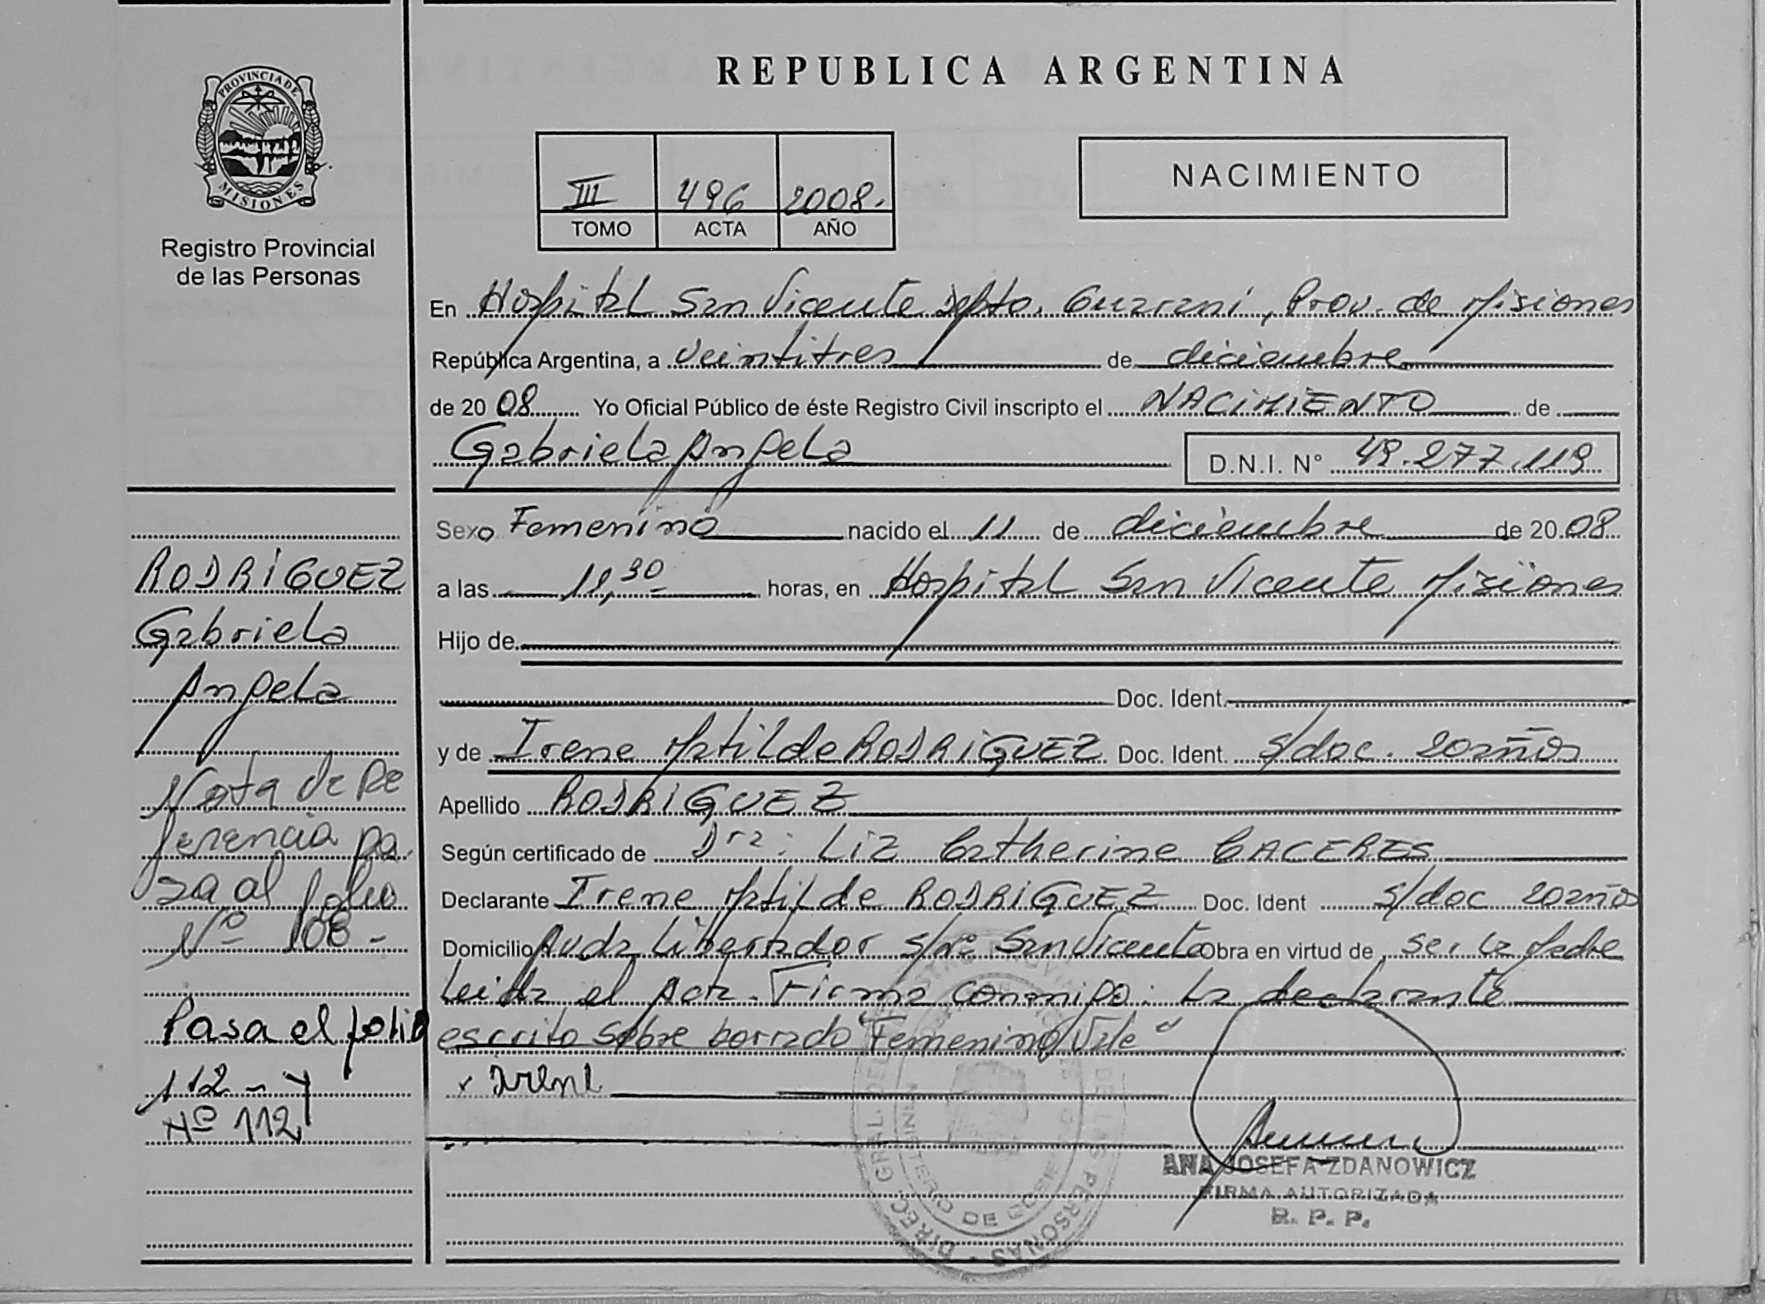 REPUBLICA ARGENTINA
PROVINCIA DE MISIONES
Registro Provincial
de las Personas
III 496 2008.
TOMO ACTA AÑO
NACIMIENTO
En Hospital San Vicente Depto. Guarani, Prov. de Misiones
República Argentina, a veintitres de diciembre
de 20 08 Yo Oficial Público de éste Registro Civil inscripto el NACIMIENTO de
Gabriela Angela D.N.I. N° 49.277.119
Sexo Femenino nacido el 11 de diciembre de 20 08
a las 11,30 horas, en Hospital San Vicente Misiones
Hijo de
Doc. Ident.
y de Irene Matilde RODRIGUEZ Doc. Ident. s/doc. 20años
Apellido RODRIGUEZ
Según certificado de Dra: Liz Catherine CACERES
Declarante Irene Matilde RODRIGUEZ Doc. Ident s/doc 20años
Domicilio Avda Libertador s/nº San Vicente Obra en virtud de ser la Madre
Leida el Acta. Firma conmigo: La declarante
escrito sobre borrado "Femenino" Vale"
x Irene
ANA JOSEFA ZDANOWICZ
FIRMA AUTORIZADA
R. P. P.
RODRIGUEZ
Gabriela
Angela
Nota de Re
ferencia pa.
sa al folio
Nº 108 -
Pasa el folio
112 - y
Nº 112